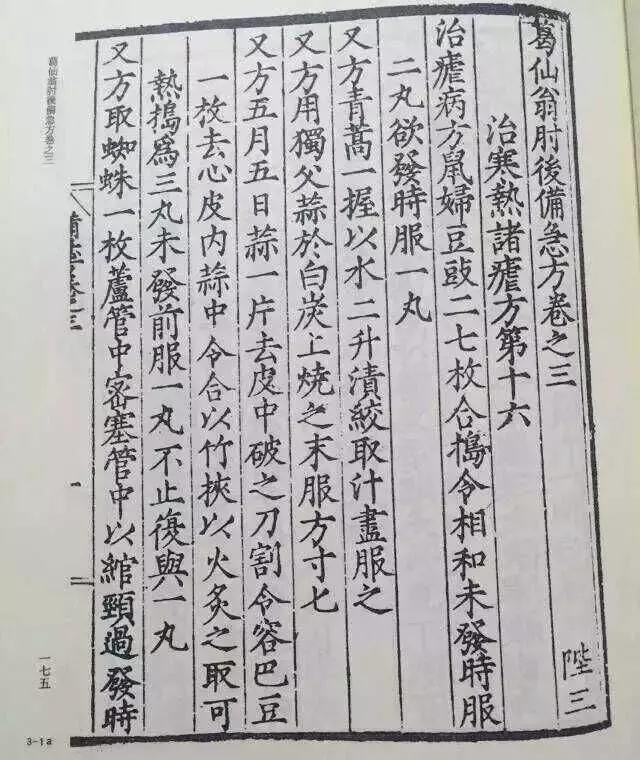 葛仙翁肘後備急方卷之三
陛三
治寒熱諸瘧方第十六
治瘧病方鼠婦豆豉二七枚合擣令相和未發時服
二丸欲發時服一丸
又方青蒿一握以水二升漬絞取汁盡服之
又方用獨父蒜於白炭上燒之末服方寸匕
又方五月五日蒜一片去皮中破之刀割令容巴豆
一枚去心皮內蒜中令合以竹挾以火炙之取可
熱搗爲三丸未發前服一丸不止復與一丸
又方取蜘蛛一枚蘆管中密塞管中以綰頸過發時
葛仙翁肘後備急方卷之三
一七五
3-1a